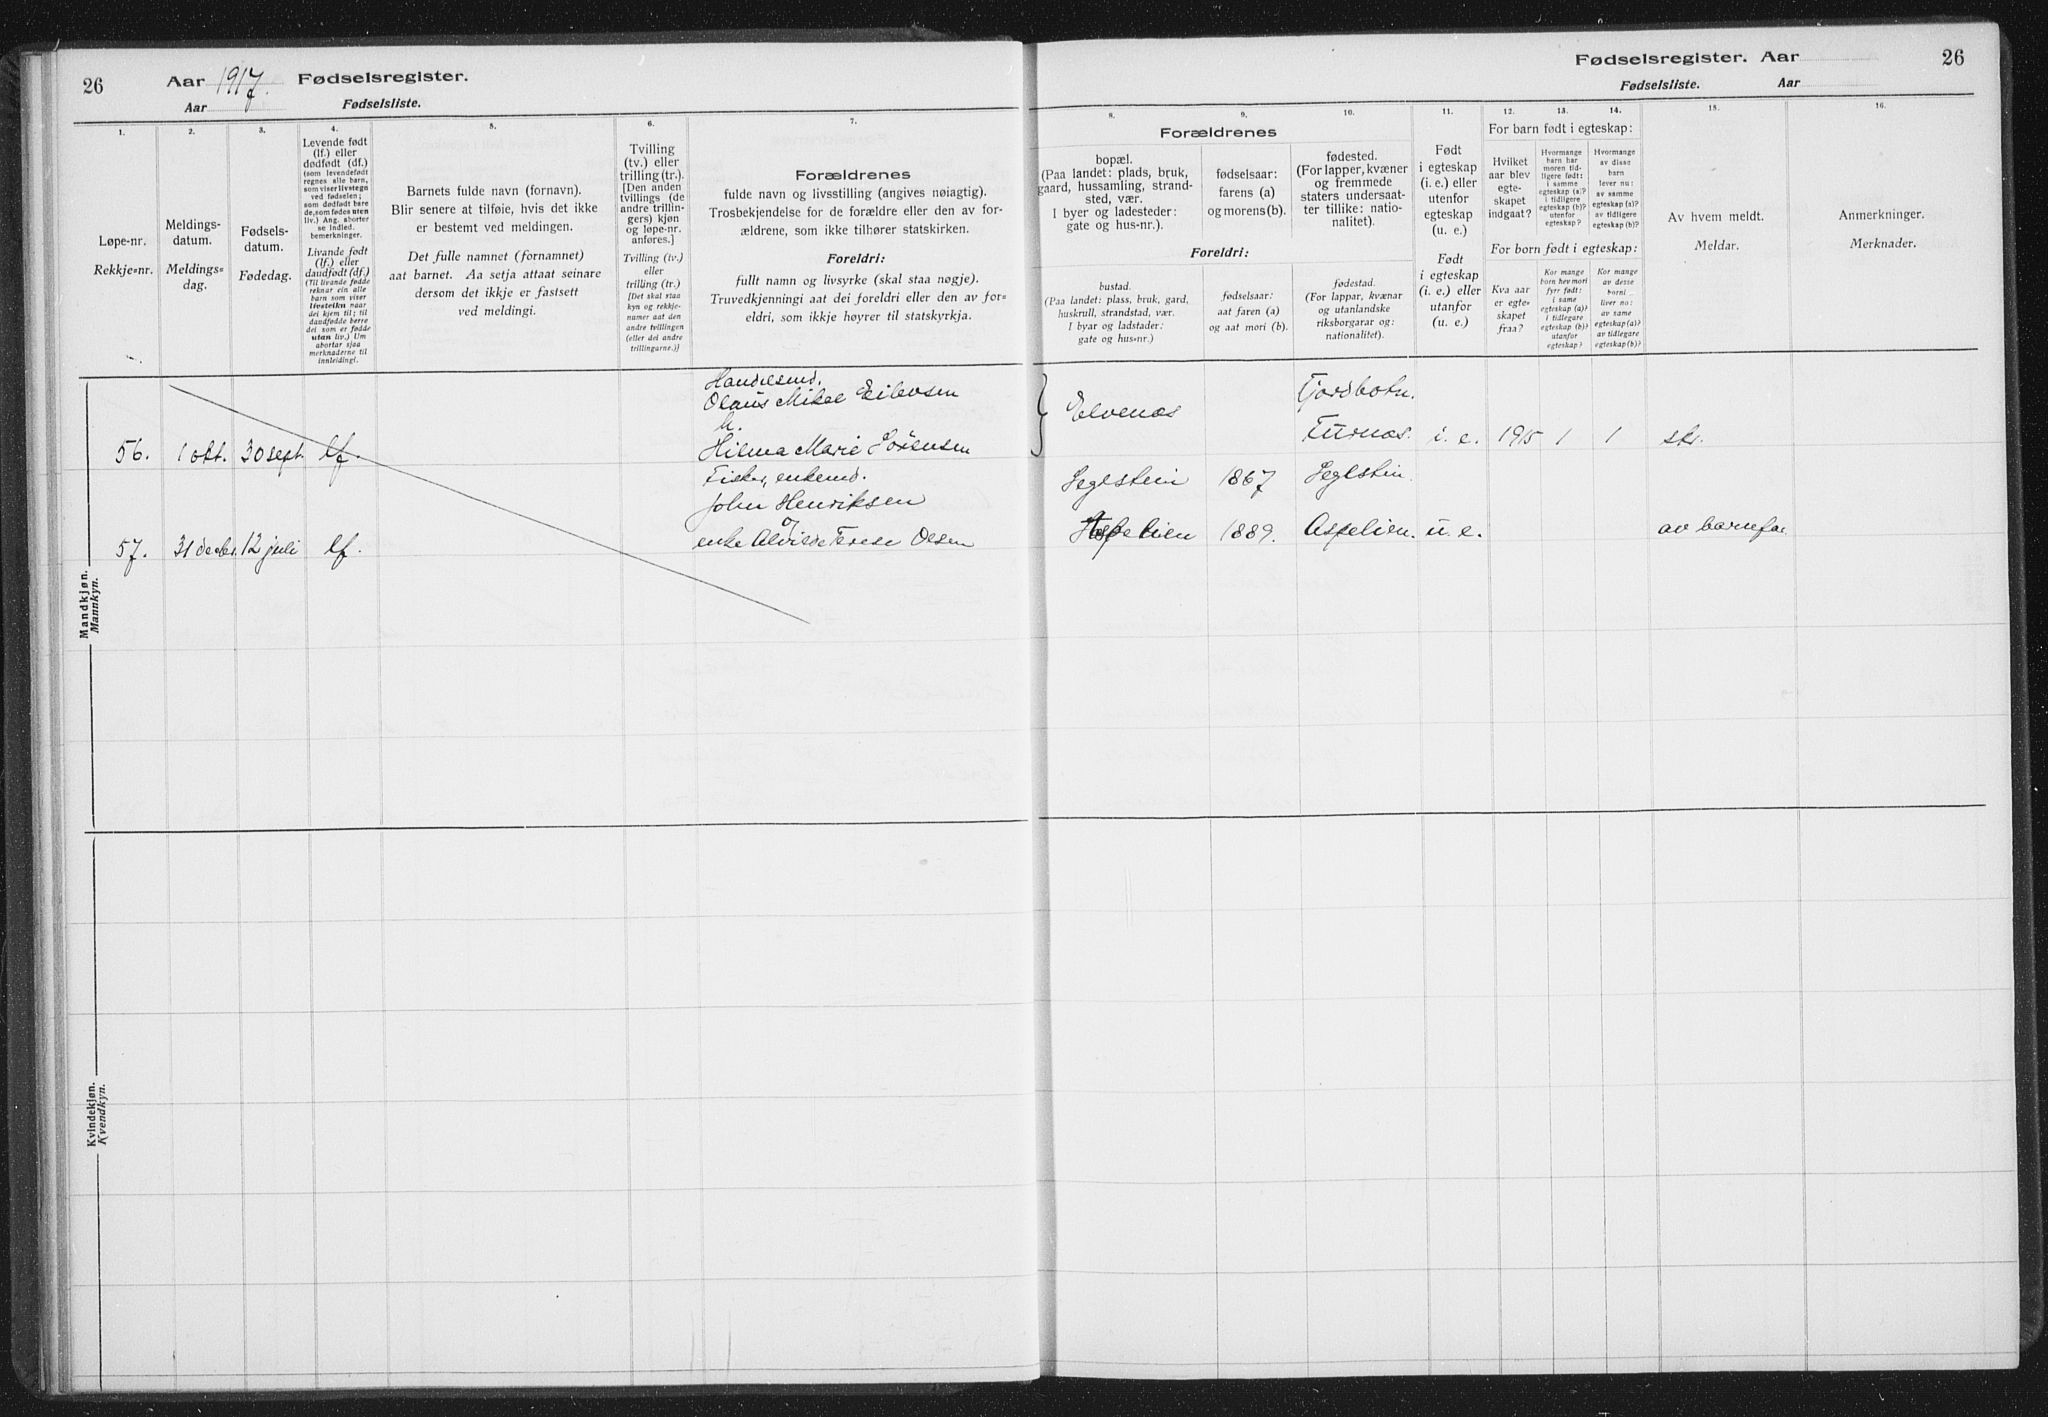 26 Aar 1917. Fødselsregister.
Aar Fødselsliste.
Fødselsregister. Aar 26
Fødselsliste. Aar
1. 2. 3. 4. 5. 6. 7. 8. 9. 10. 11. 12. 13. 14. 15. 16.
Løpe-nr.
Rekkje-nr.
Meldings-
datum.
Meldings-
dag.
Fødsels-
datum.
Fødedag.
Levende født
(lf.) eller
dødfødt (df.)
(som levendefødt
regnes alle barn,
som viser livstegn
ved fødselen;
som dødfødt bare
de, som fødes uten
liv.) Ang. aborter
se indled.
bemerkninger.
Livande født
(lf.) eller
daudfødt (df.)
(Til livande fødde
reknar ein alle
barn som viser
livsteikn naar
dei kjem til; til
daudfødde berre
dei som er fødde
utan liv.) Um
abortar sjaa
merknaderne til
innleidingi.
Barnets fulde navn (fornavn).
Blir senere at tilføie, hvis det ikke
er bestemt ved meldingen.
Det fulle namnet (fornamnet)
aat barnet. Aa setja attaat seinare
dersom det ikkje er fastsett
ved meldingi.
Tvilling
(tv.) eller
trilling (tr.).
[Den anden
tvillings (de
andre trillin-
gers) kjøn
og løpe-nr.
anføres.]
Tvilling (tv.)
eller
trilling (tr.)
[Det skal staa
kyn og rekkje-
numer aat den
andre tvillingen
(eller dei andre
trillingarne.)]
Forældrenes
fulde navn og livsstilling (angives nøiagtig).
Trosbekjendelse for de forældre eller den av for-
ældrene, som ikke tilhører statskirken.
Foreldri:
fullt namn og livsyrke (skal staa nøgje).
Truvedkjenningi aat dei foreldri eller den av for-
eldri, som ikkje høyrer til statskyrkja.
Forældrenes
bopæl.
(Paa landet: plads, bruk,
gaard, hussamling, strand-
sted, vær.
I byer og ladesteder:
gate og hus-nr.).
fødselsaar:
farens (a)
og morens (b).
fødested.
(For lapper, kvæner
og fremmede
staters undersaat-
ter tillike: natio-
nalitet).
Foreldri:
bustad.
(Paa landet: plass, bruk, gard,
huskrull, strandstad, vær.
I byar og ladstader:
gate og hus-nr.)
fødselsaar:
aat faren (a)
og aat mori (b).
fødestad.
(For lappar, kvænar
og utanlandske
riksborgarar og:
nationalitet).
Født
i egteskap
(i. e.) eller
utenfor
egteskap
(u. e.)
Født
i egteskap
(i. e.) eller
utanfor
(u. e.)
For barn født i egteskap:
Hvilket
aar blev
egte-
skapet
indgaat?
Hvormange
barn har
moren tid-
ligere født:
i samme
egteskap (a)?
i tidligere
egteskap (b)?
utenfor
egteskap?
Hvormange
av disse
barn
lever nu:
av samme
egteskap (a)?
av tidligere
egteskap (b)?
For born født i egteskap:
Kva aar
er egte-
skapet
fraa?
Kor mange
born hev mori
fyrr født:
i same
egteskap (a)?
i tidlegare
egteskap (b)?
utanfor
egteskap?
Kor mange
av desse
borni
liver no:
av same
egteskap (a)?
av tidlegare
egteskap (b)?
Av hvem meldt.
Meldar.
Anmerkninger.
Merknader.
Mandkjøn.
Mannkyn.
Handelsmd.
Olaus Mikal Eilevsen
h.
56. 1 okt. 30 sept. lf. Hilma Marie Sørensen
Elvenæs Fjordbotn.
Furnæs. i. e. 1915 1 1 str.
Fisker, enkemd.
John Henriksen Seglstein 1867 Seglstein.
57. 31 decbr. 12 juli lf. enke Alvilde Terese Olsen Aspelien 1889. Aspelien. u. e. av barnefar
Kvindekjøn.
Kvendkyn.